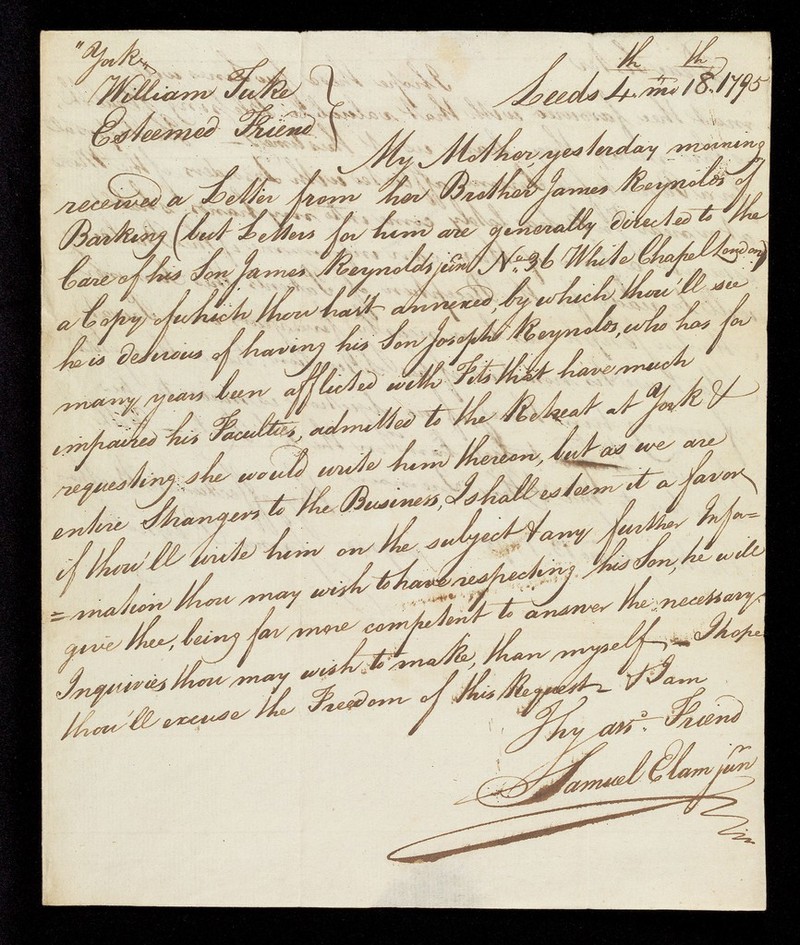 "York"
William Tuke
Esteemed Friend
Leeds 4th mo 18th 1795
My Mother, yesterday morning
received a Letter from her Brother James Reynolds of
Barking (but Letters for him are generally directed to the
Care of his Son James Reynolds jun No. 36 White Chapel London)
a Copy of which thou hast annexed, by which thou'll see
he is desirous of having his Son Joseph Reynolds, who has for
many years been afflicted with Fits that have much
impaired his Faculties, admitted to the Retreat at York &
requesting she would write him thereon, but as we are
entire Strangers to the Business, I shall esteem it a favor
if thou'll write him on the subject & any further Infor=
=mation thou may wish to have respecting his Son, he will
give thee, being far more competent to answer the necessary
Inquiries thou may wish to make, than myself – I hope
thou'll excuse the Freedom of this Request – & I am
Thy assd. Friend
Samuel Elam junr